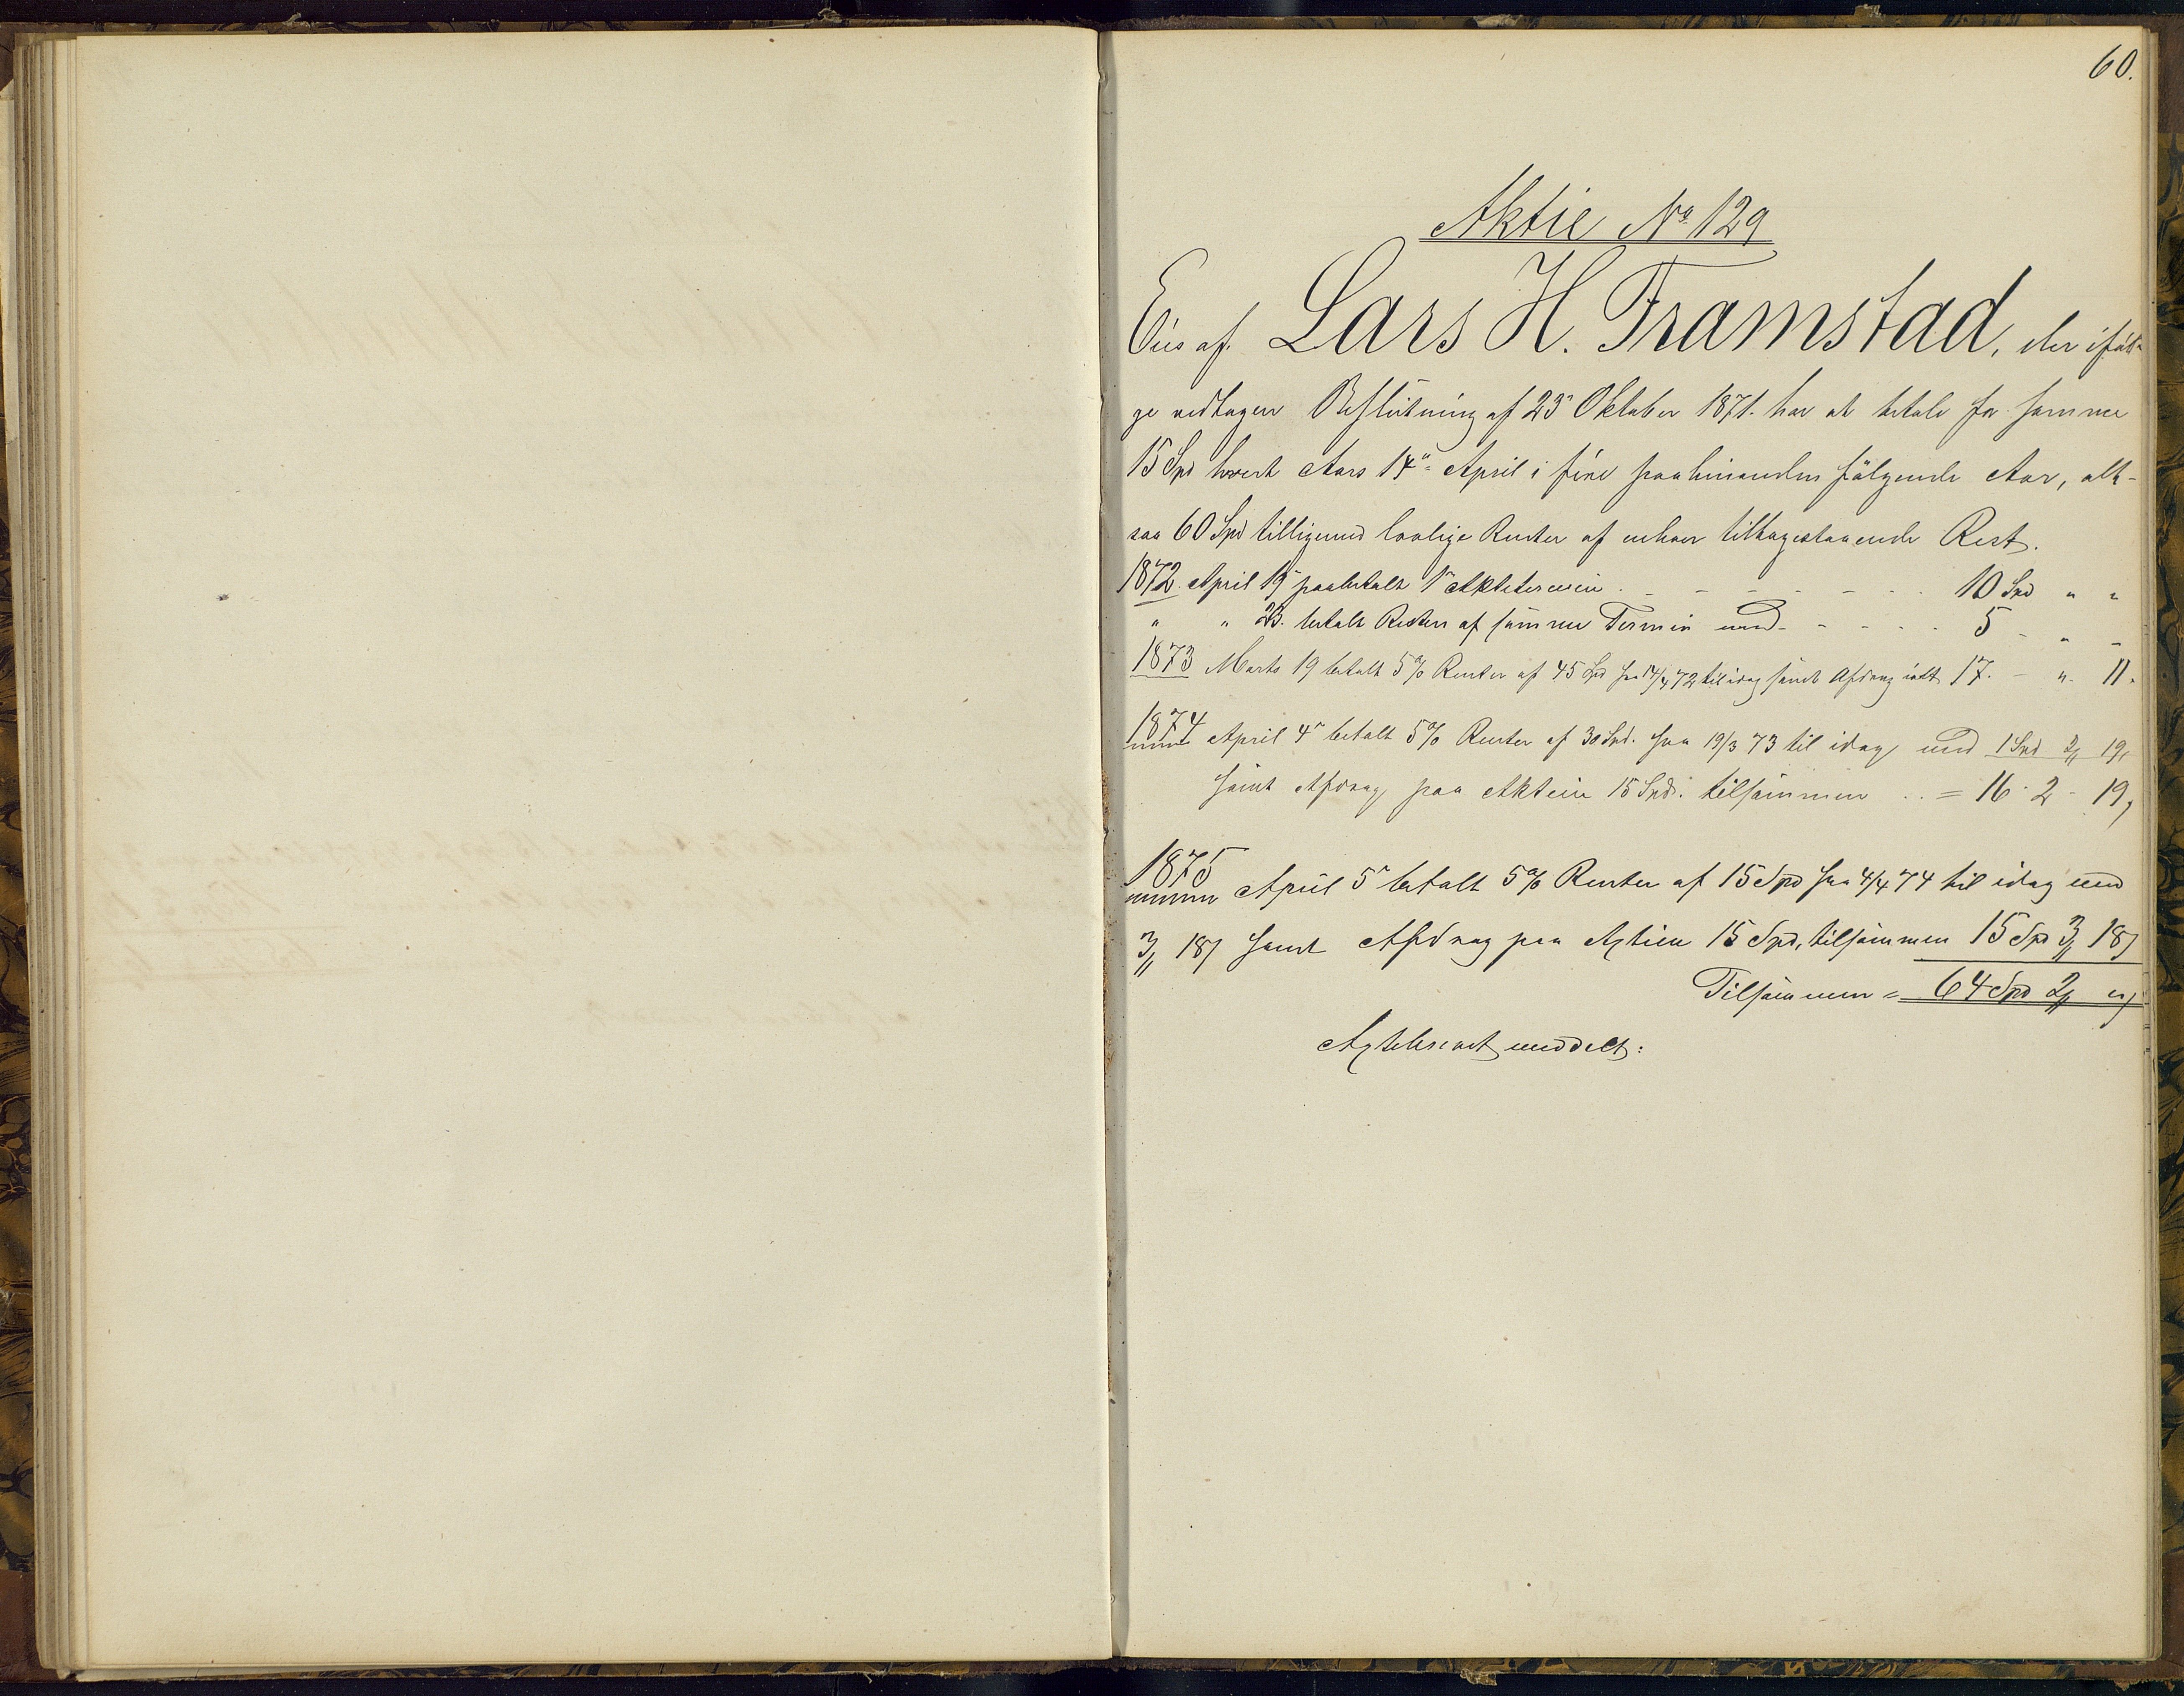 60.
Aktie No 129
Eies af Lars H. Framstad, der iføl-
ge vedtagen Beslutning af 25' Oktober 1871. har at betale for samme
15 Spd hvert Aars 14de April i fire paahinanden følgende Aar, alt-
saa 60 Spd tilligemed lovlige Renter af enhver tilbagestaaende Rest.
1872. April 19' paabetalt 1' Aktietermin . - - - - - . . 10 Spd " "
" " 23. betalt Resten af samme Termin med - - - . . 5 - " -
1873 Marts 19 betalt 5% Renter af 45 Spd fra 14/4 72 til idag samt Afdrag ialt 17. - " 11.
1874 April 4' betalt 5% Renter af 30 Spd. fra 19/3 73 til idag med 1 Spd 2 19
samt Afdrag paa Aktien 15 Spd. tilsammen . . = 16 - 2 - 19
1875 April 5' betalt 5% Renter af 15 Spd fra 4/4 74 til idag med
3 18 samt Afdrag paa Aktien 15 Spd, tilsammen 15 Spd 3 18
Tilsammen = 64 Spd 2 "
Aktiebrevet meddelt: